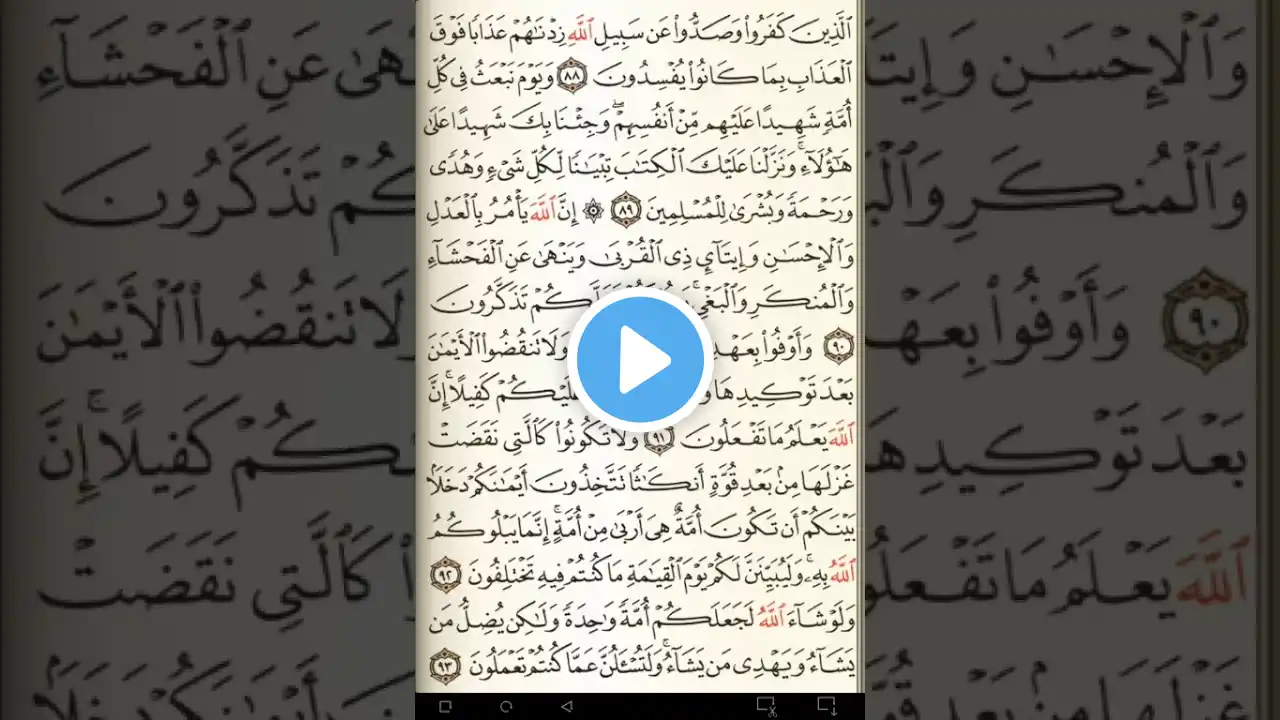 ٱلَّذِينَ كَفَرُوا۟ وَصَدُّوا۟ عَن سَبِيلِ ٱللَّهِ زِدْنَـٰهُمْ عَذَابًا فَوْقَ
ٱلْعَذَابِ بِمَا كَانُوا۟ يُفْسِدُونَ ٨٨ وَيَوْمَ نَبْعَثُ فِى كُلِّ
أُمَّةٍ شَهِيدًا عَلَيْهِم مِّنْ أَنفُسِهِمْ ۖ وَجِئْنَا بِكَ شَهِيدًا عَلَىٰ
هَـٰٓؤُلَآءِ ۚ وَنَزَّلْنَا عَلَيْكَ ٱلْكِتَـٰبَ تِبْيَـٰنًا لِّكُلِّ شَىْءٍ وَهُدًى
وَرَحْمَةً وَبُشْرَىٰ لِلْمُسْلِمِينَ ٨٩ ۞ إِنَّ ٱللَّهَ يَأْمُرُ بِٱلْعَدْلِ
وَٱلْإِحْسَـٰنِ وَإِيتَآئِ ذِى ٱلْقُرْبَىٰ وَيَنْهَىٰ عَنِ ٱلْفَحْشَآءِ
وَٱلْمُنكَرِ وَٱلْبَغْىِ ۚ تَذَكَّرُونَ
٩٠ وَأَوْفُوا۟ وَلَا تَنقُضُوا۟ ٱلْأَيْمَـٰنَ
بَعْدَ تَوْكِيدِهَا كَفِيلًا ۚ إِنَّ
ٱللَّهَ يَعْلَمُ مَا تَفْعَلُونَ ٩١ وَلَا تَكُونُوا۟ كَٱلَّتِى نَقَضَتْ
غَزْلَهَا مِنۢ بَعْدِ قُوَّةٍ أَنكَـٰثًا تَتَّخِذُونَ أَيْمَـٰنَكُمْ دَخَلًۢا
بَيْنَكُمْ أَن تَكُونَ أُمَّةٌ هِىَ أَرْبَىٰ مِنْ أُمَّةٍ ۚ إِنَّمَا يَبْلُوكُمُ
ٱللَّهُ بِهِۦ ۚ وَلَيُبَيِّنَنَّ لَكُمْ يَوْمَ ٱلْقِيَـٰمَةِ مَا كُنتُمْ فِيهِ تَخْتَلِفُونَ ٩٢
وَلَوْ شَآءَ ٱللَّهُ لَجَعَلَكُمْ أُمَّةً وَٰحِدَةً وَلَـٰكِن يُضِلُّ مَن
يَشَآءُ وَيَهْدِى مَن يَشَآءُ ۚ وَلَتُسْـَٔلُنَّ عَمَّا كُنتُمْ تَعْمَلُونَ ٩٣